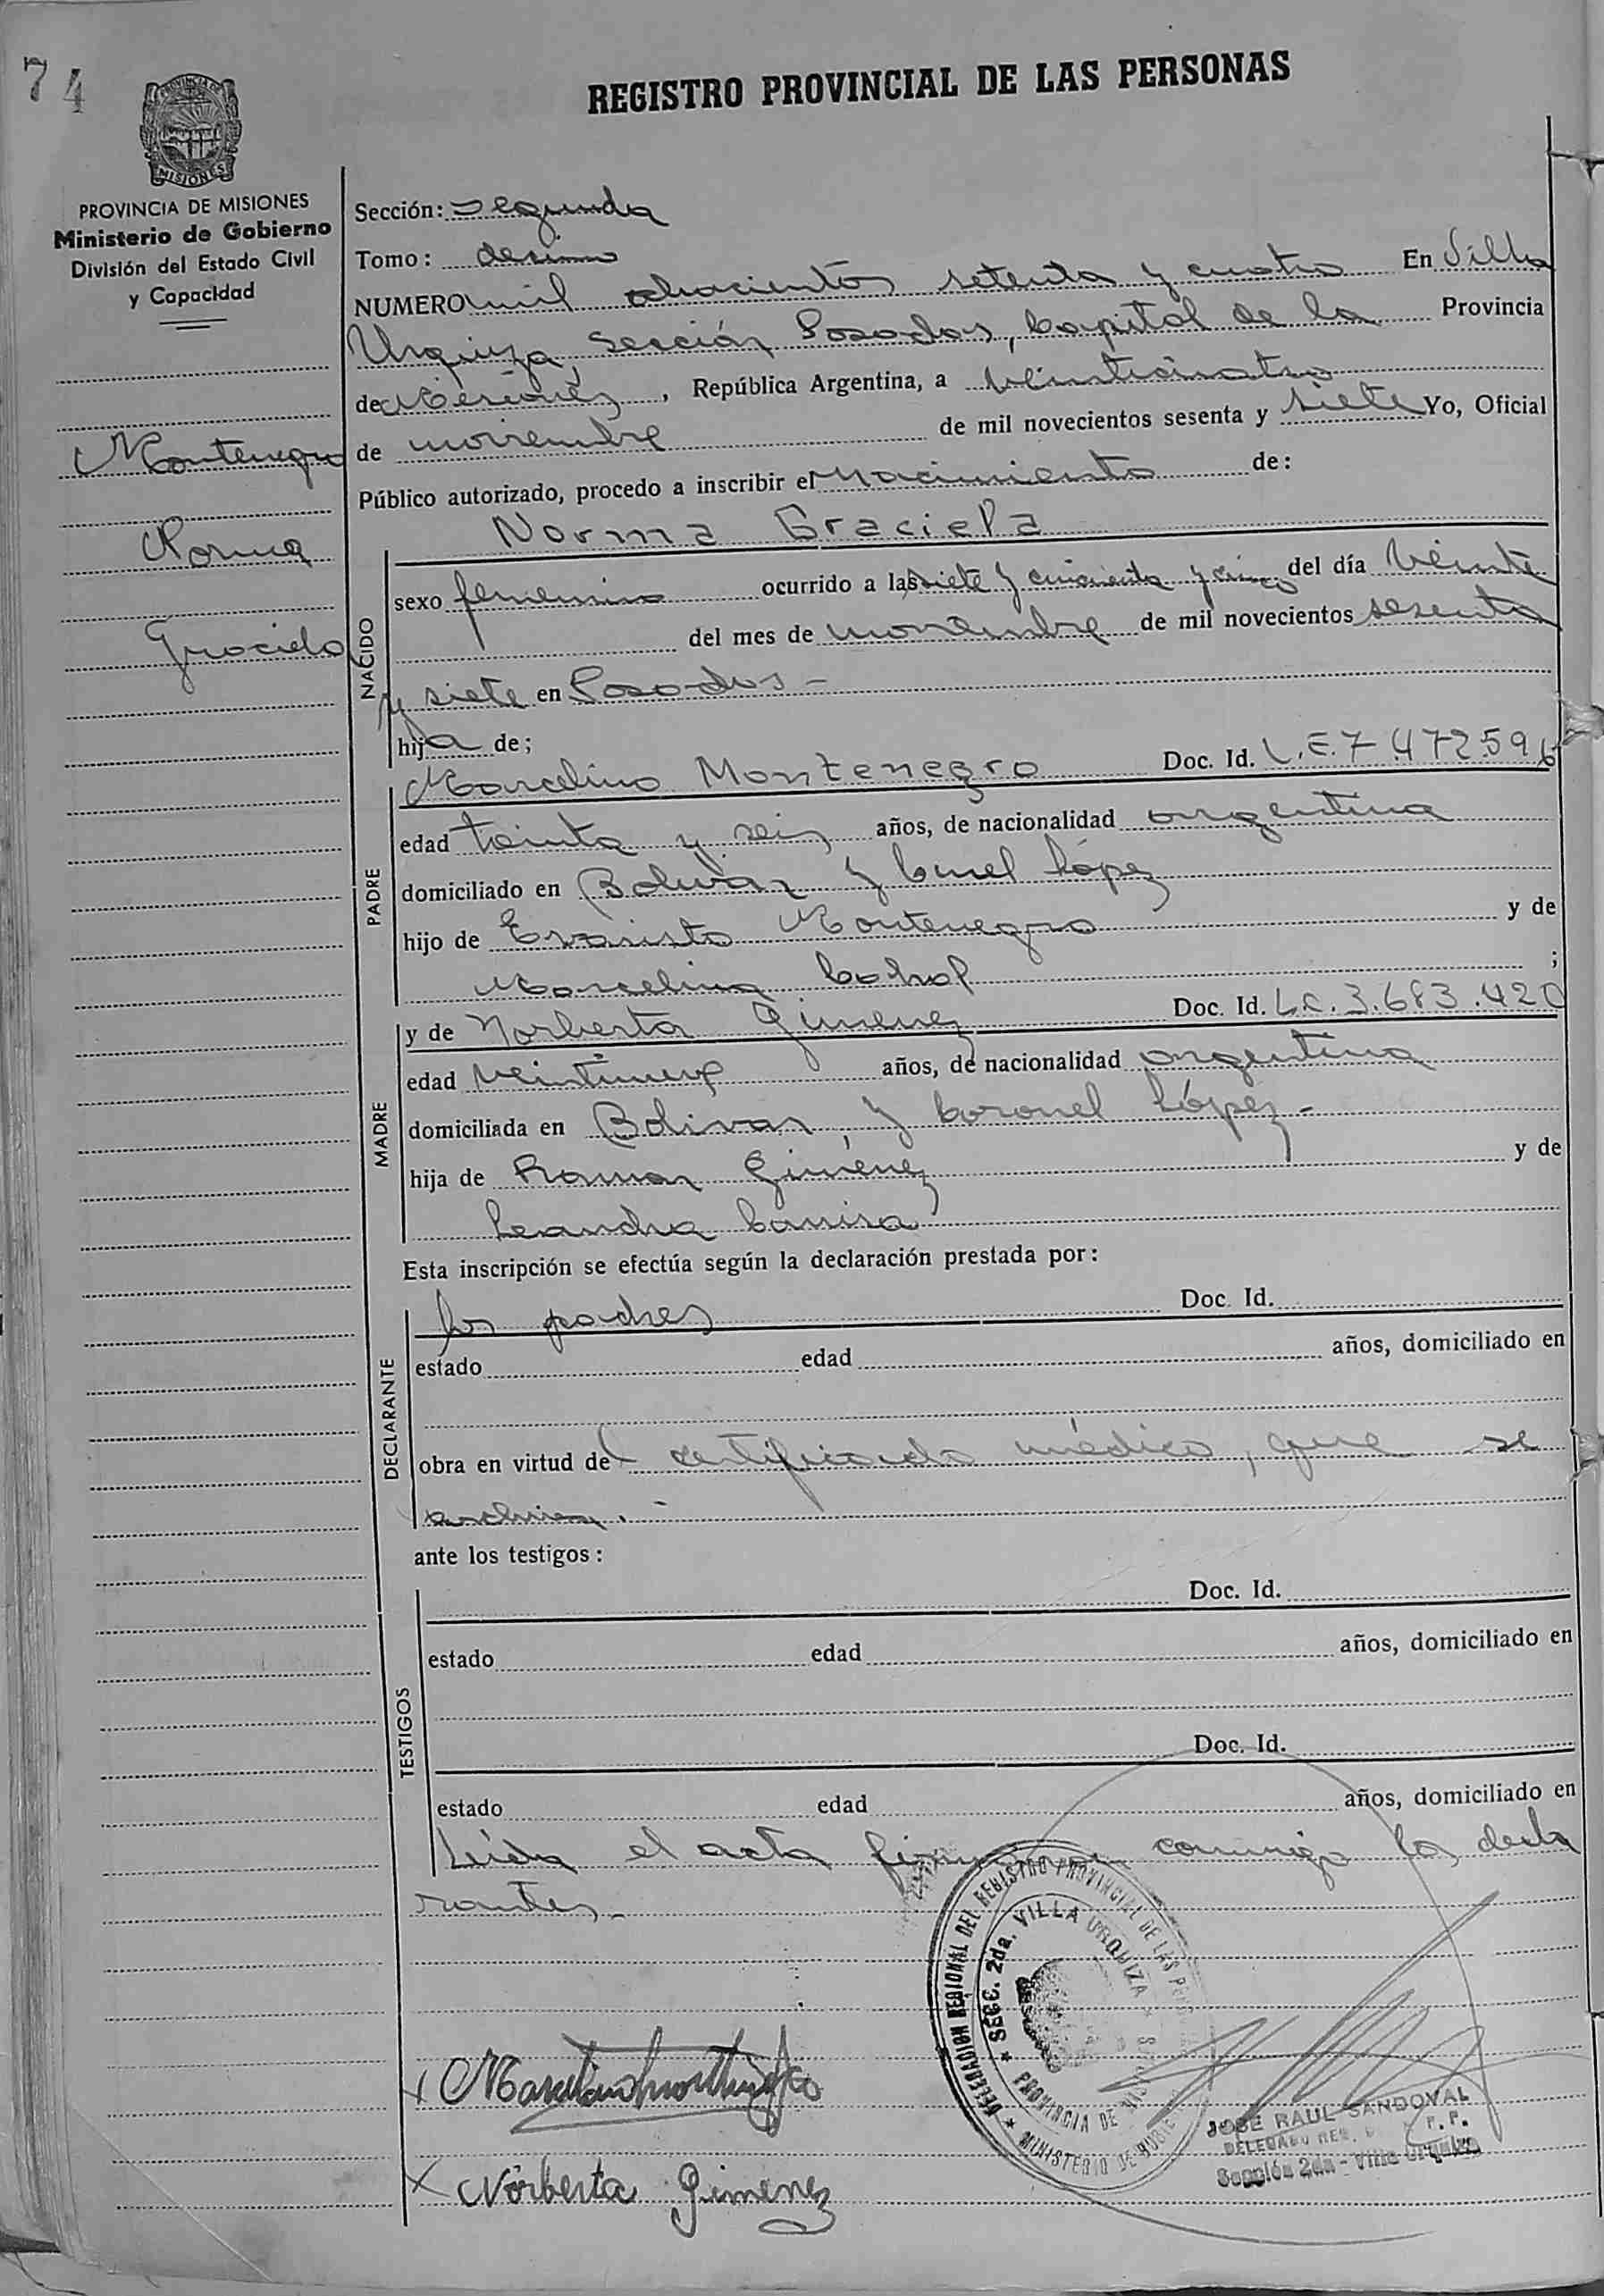 74
REGISTRO PROVINCIAL DE LAS PERSONAS
MISIONES
PROVINCIA DE MISIONES
Ministerio de Gobierno
División del Estado Civil
y Capacidad
Montenegro
Norma
Graciela
Sección: segunda
Tomo: desimo
NUMERO mil ochocientos setenta y cuatro En Villa
Urquiza, Sección Posadas, Capital de la Provincia
de Misiones, República Argentina, a veinticuatro
de noviembre de mil novecientos sesenta y siete Yo, Oficial
Público autorizado, procedo a inscribir el Nacimiento de:
Norma Graciela
NACIDO
sexo femenino ocurrido a las siete y cincuenta y cinco del día veinte
del mes de noviembre de mil novecientos sesenta
y siete en Posadas -
hija de;
PADRE
Marcelino Montenegro Doc. Id. L.E. 7.472.596
edad treinta y seis años, de nacionalidad argentina
domiciliado en Bolivar y Cnel López
hijo de Evaristo Montenegro y de
Marcelina ;
MADRE
y de Norberta Gimenez Doc. Id. L.C. 3.683.420
edad veintinueve años, de nacionalidad argentina
domiciliada en Bolivar, y Coronel López -
hija de Roman Giménez y de
Leandra
Esta inscripción se efectúa según la declaración prestada por:
DECLARANTE
los padres Doc. Id.
estado edad años, domiciliado en
obra en virtud del certificado médico, que se
archiva. -
ante los testigos:
TESTIGOS
Doc. Id.
estado edad años, domiciliado en
Doc. Id.
estado edad años, domiciliado en
Leída el acta firman conmigo los decla
rantes -
DELEGACION REGIONAL DEL REGISTRO PROVINCIAL DE LAS
SECC. 2da. VILLA URQUIZA
PROVINCIA DE
MINISTERIO DE
x Marcelino Montenegro
JOSE RAUL SANDOVAL
DELEGADO REG. R.P.P.
Sección 2da - Villa Urquiza
x Norberta Gimenez